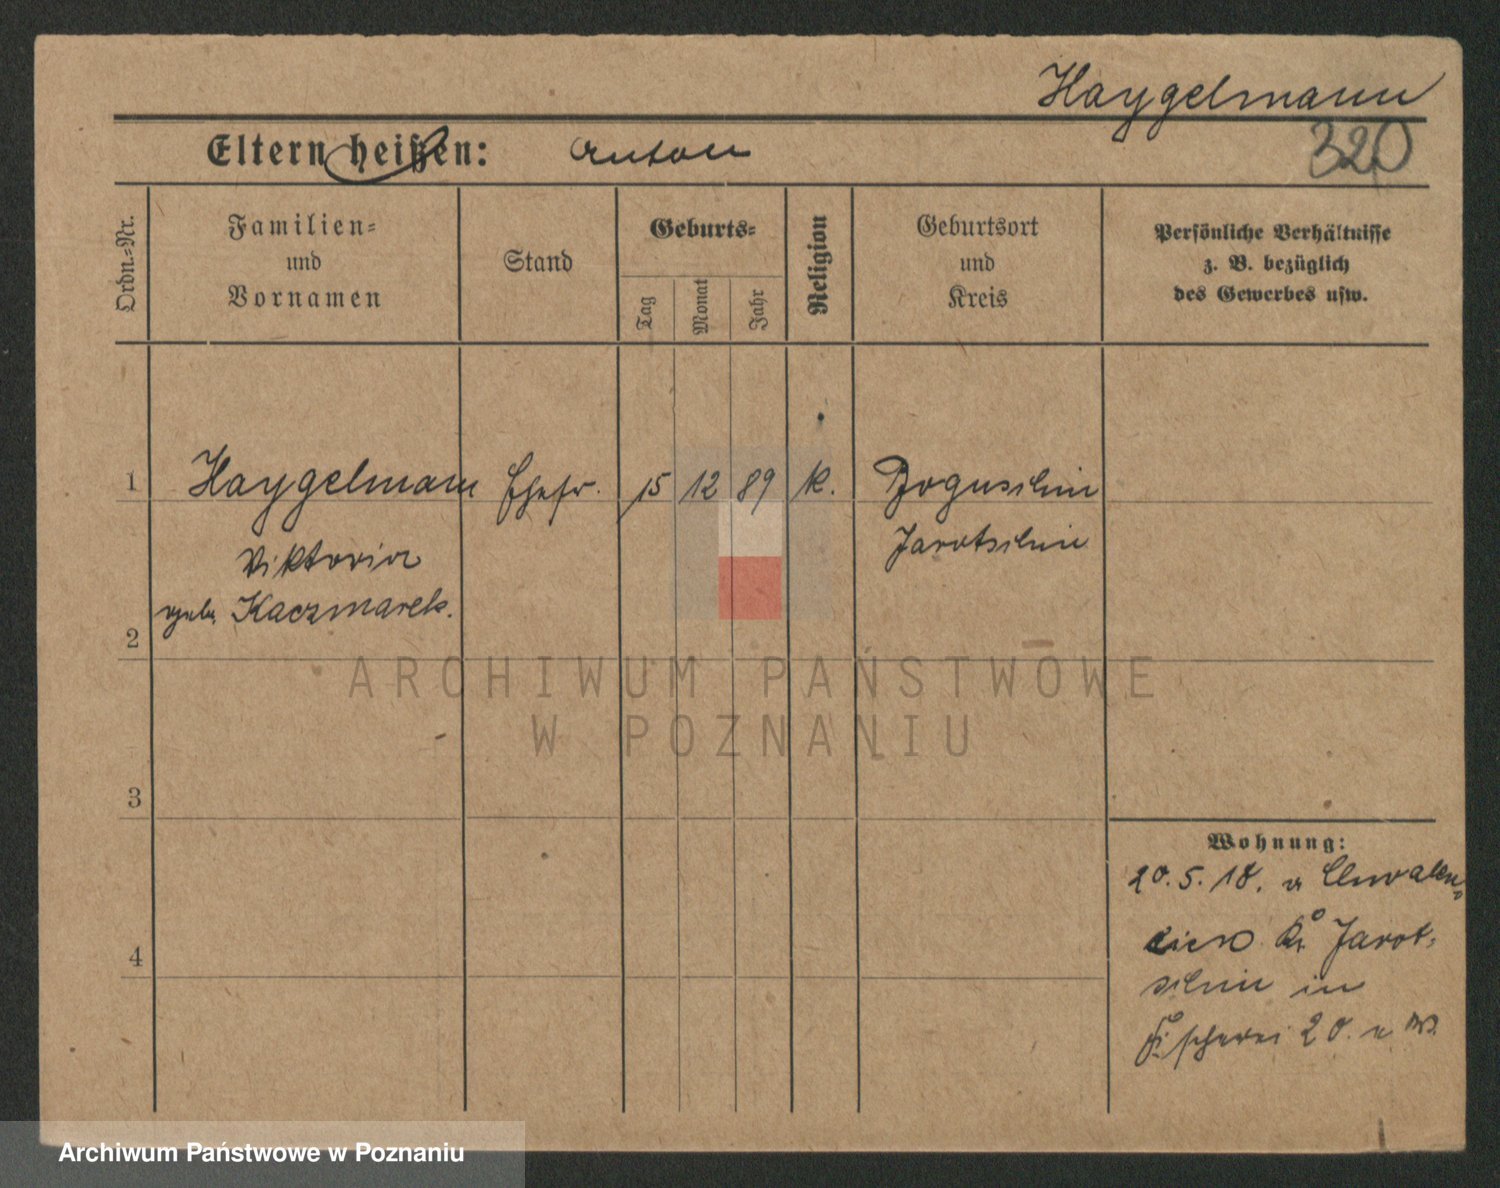 Haygelmann
320
Eltern heißen: Anton
Ordn.-Nr.
Familien-
und
Vornamen
Stand
Geburts-
Tag
Monat
Jahr
Religion
Geburtsort
und
Kreis
Persönliche Verhältnisse
z. B. bezüglich
des Gewerbes usw.
1 Haygelmann Ehefr. 15 12 89 k. Boguschin
Jarotschin
Viktoria
geb. Kaczmarek.
2
3
4
Wohnung:
20.5.18. v Chwalen-
cice Kr Jarot-
schin in
Fischerei 20.
ARCHIWUM PAŃSTWOWE
W POZNANIU
Archiwum Państwowe w Poznaniu